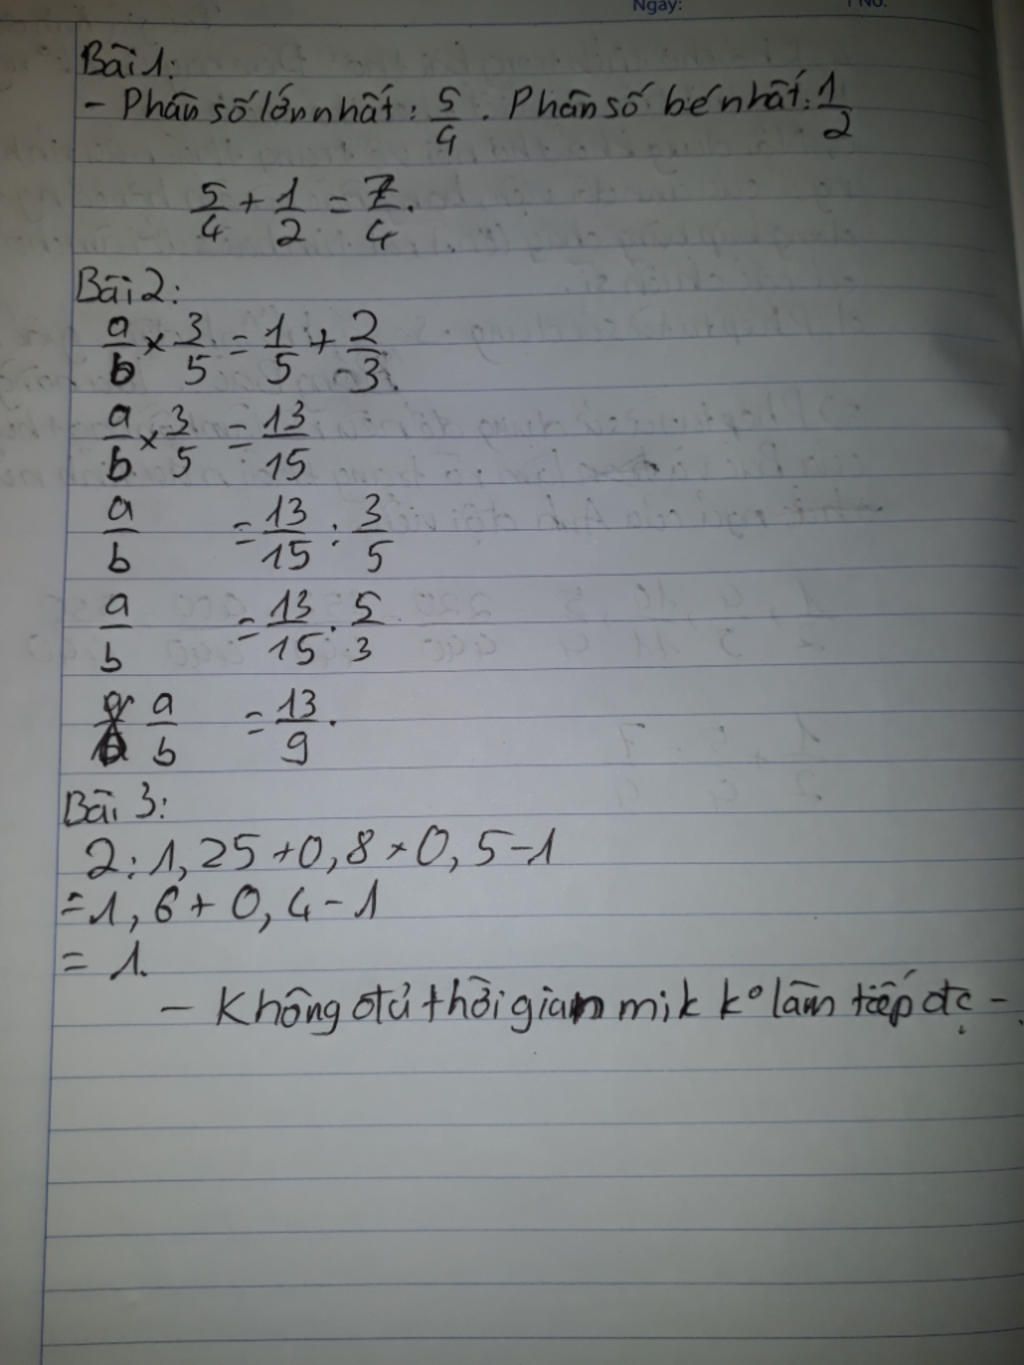 Ngày:
No:
Bài 1:
- Phân số lớn nhất: 5/4. Phân số bé nhất: 1/2
5/4 + 1/2 = 7/4.
Bài 2:
a/b × 3/5 = 1/5 + 2/3.
a/b × 3/5 = 13/15
a/b = 13/15 : 3/5
a/b = 13/15 . 5/3
a/b = 13/9.
Bài 3:
2:1,25+0,8×0,5-1
=1,6+0,4-1
= 1.
- Không đủ thời gian mik k° làm tiếp đc -